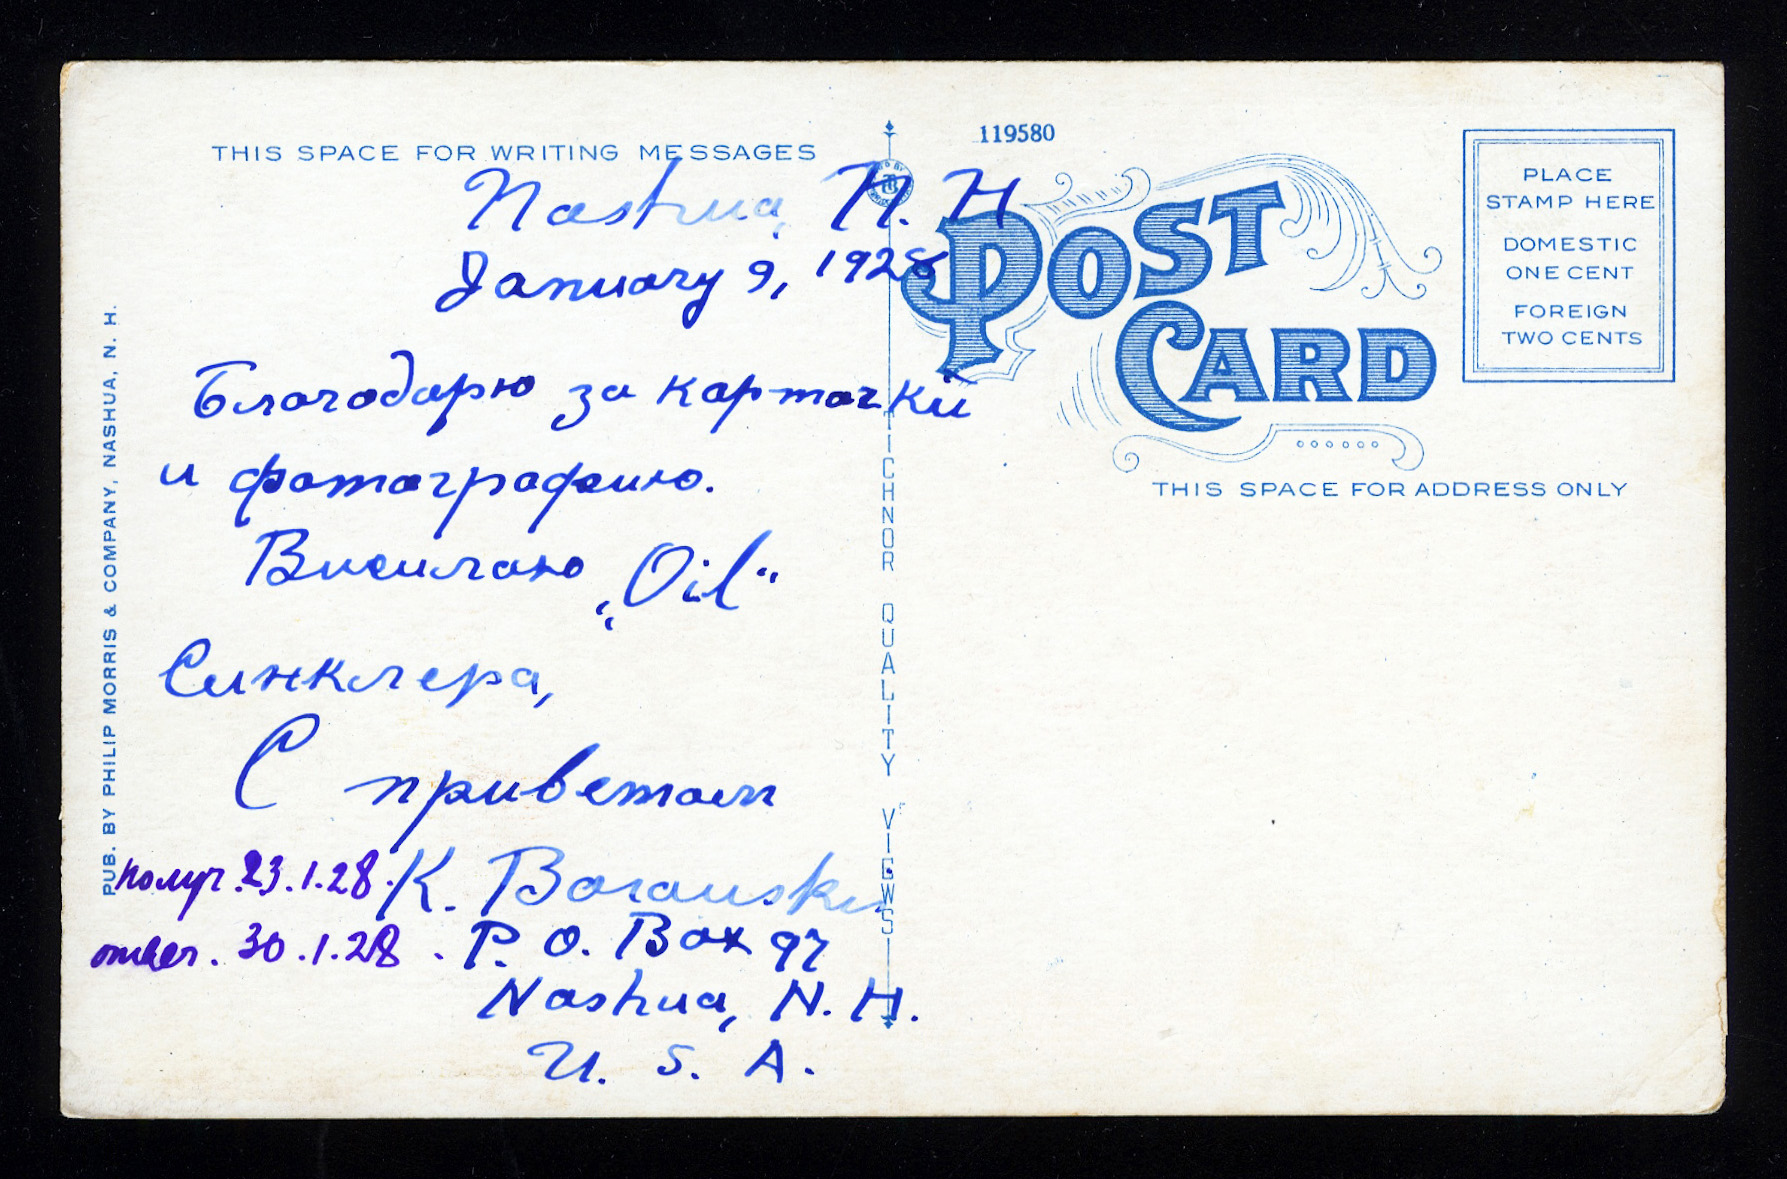 THIS SPACE FOR WRITING MESSAGES
Nashua, N. H
January 9, 1928
Благодарю за карточки
и фотографию.
Висилаю „Oil“
Синклера,
С приветом
K.
P. O. Box 97
Nashua, N. H.
U. S. A.
получ. 23.1.28.
ответ. 30.1.28.
PUB. BY PHILIP MORRIS & COMPANY, NASHUA, N. H.
TICHNOR QUALITY VIEWS
119580
POST CARD
PLACE
STAMP HERE
DOMESTIC
ONE CENT
FOREIGN
TWO CENTS
THIS SPACE FOR ADDRESS ONLY